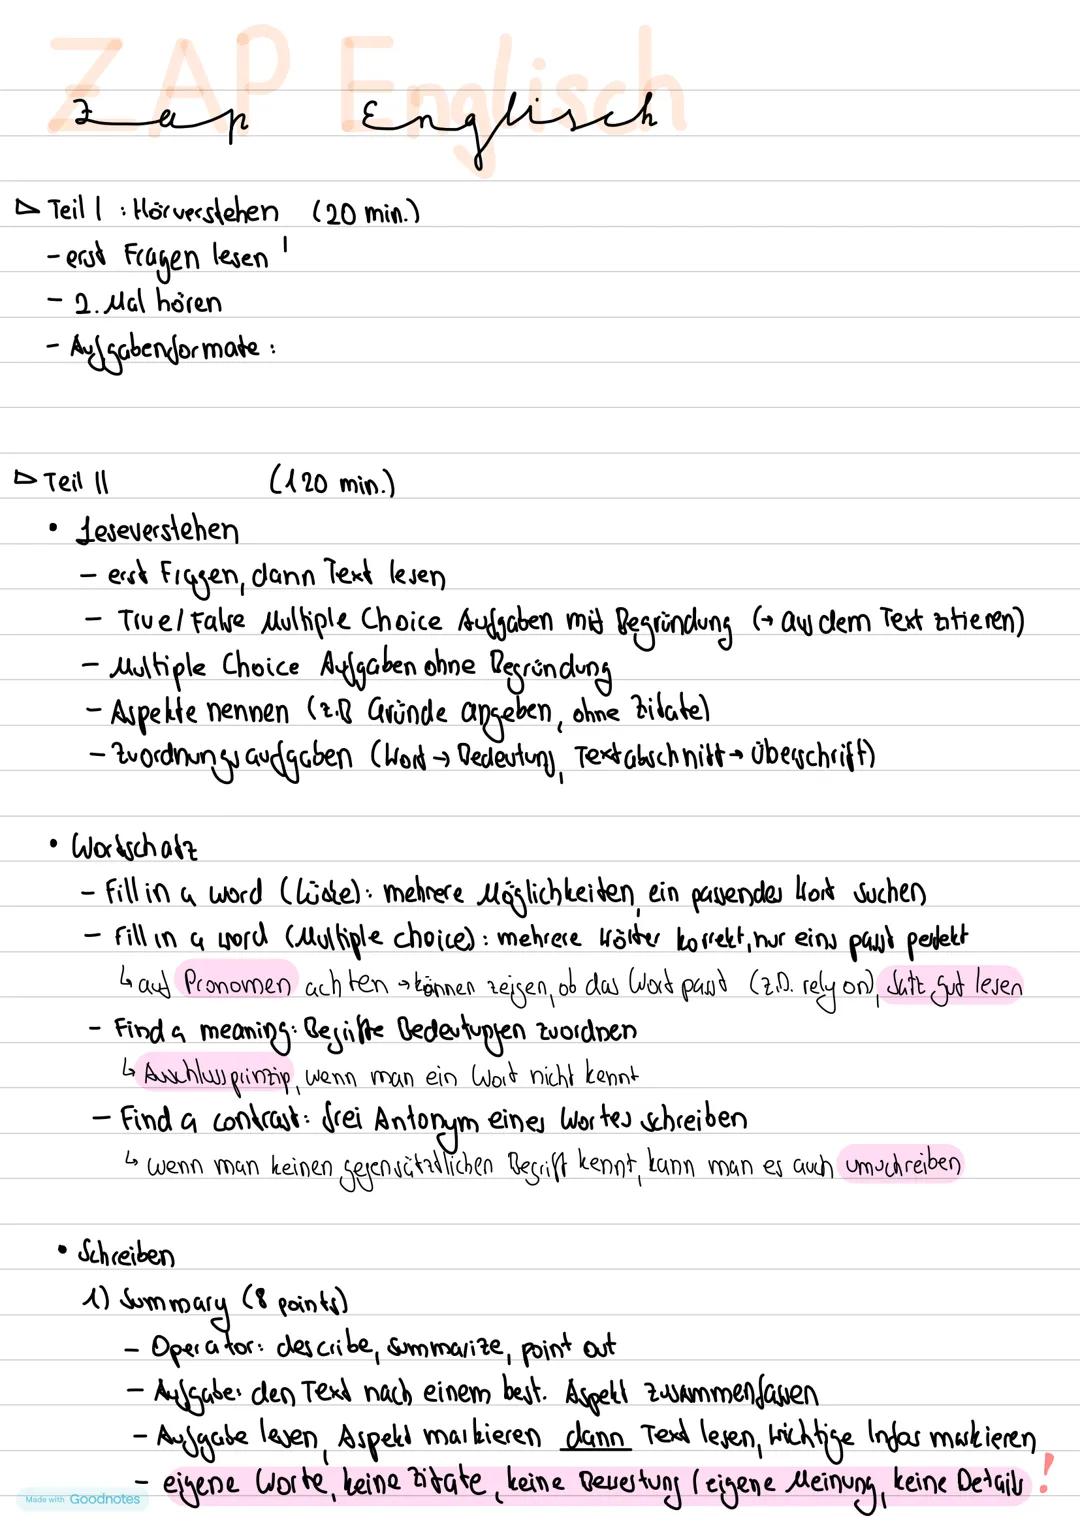 ZAP Englisch
Zap Englisch
▷ Teil I : Hörverstehen (20 min.)
- erst Fragen lesen !
- 2. Mal hören
- Aufgabenformate :
▷ Teil II (120 min.)
• Leseverstehen
- erst Fragen, dann Text lesen
- True/False Multiple Choice Aufgaben mit Begründung (→ aus dem Text zitieren)
- Multiple Choice Aufgaben ohne Begründung
- Aspekte nennen (z.B Gründe angeben, ohne Zitate)
- Zuordnungsaufgaben (Wort → Bedeutung, Textabschnitt → Überschrift)
• Wortschatz
- Fill in a word (Lücke): mehrere Möglichkeiten, ein passendes Wort suchen
- Fill in a word (Multiple choice): mehrere Wörter korrekt, nur eins passt perfekt
↳ auf Pronomen achten → können zeigen, ob das Wort passt (z.B. rely on), Satz gut lesen
- Find a meaning: Begriffe Bedeutungen zuordnen
↳ Ausschlussprinzip, wenn man ein Wort nicht kennt
- Find a contrast: frei Antonym eines Wortes schreiben
↳ wenn man keinen gegensätzlichen Begriff kennt, kann man es auch umschreiben
• Schreiben
1) Summary (8 points)
- Operator: describe, summarize, point out
- Aufgabe: den Text nach einem best. Aspekt zusammenfassen
- Aufgabe lesen, Aspekt markieren dann Text lesen, wichtige Infos markieren
- eigene Worte, keine Zitate, keine Bewertung / eigene Meinung, keine Details !
Made with Goodnotes